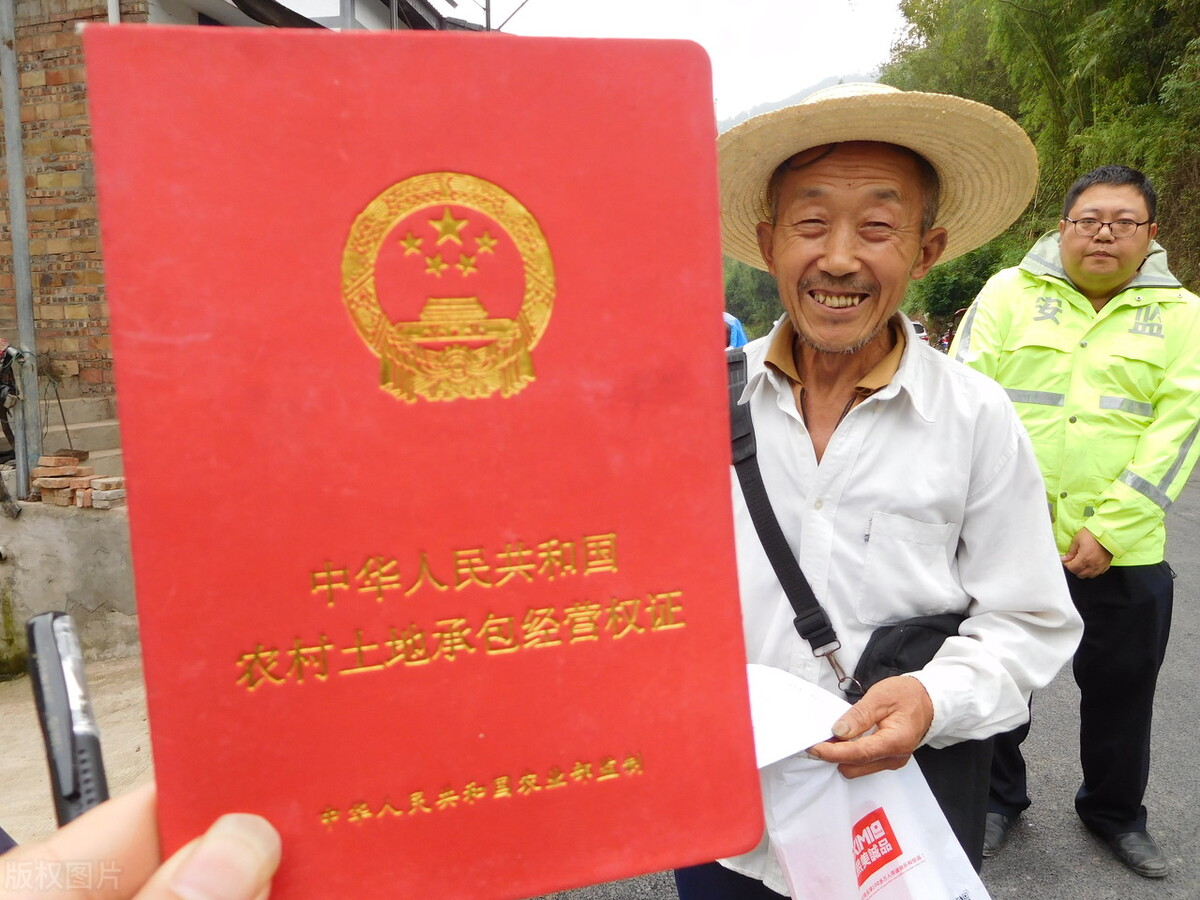 中华人民共和国
农村土地承包经营权证
中华人民共和国农业部监制
安 监
版权图片